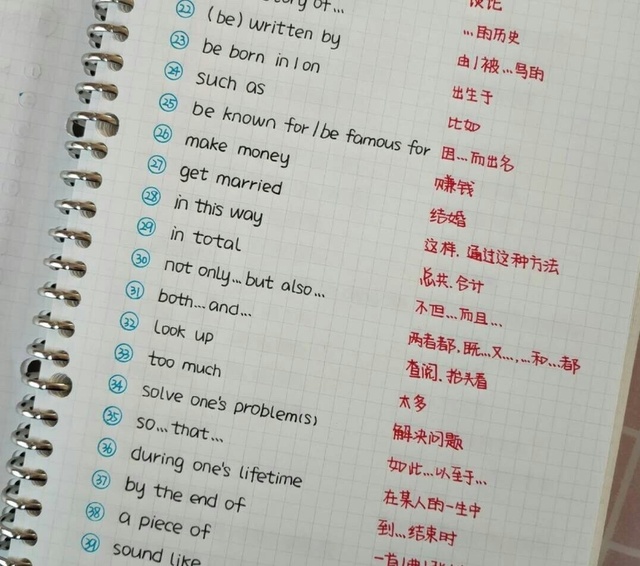 of... ...的历史
㉒ (be) written by 由/被...写的
㉓ be born in/on 出生于
㉔ such as 比如
㉕ be known for/be famous for 因...而出名
㉖ make money 赚钱
㉗ get married 结婚
㉘ in this way 这样.通过这种方法
㉙ in total 总共.合计
㉚ not only...but also... 不但...而且...
㉛ both...and... 两者都.既...又...,...和...都
㉜ look up 查阅.抬头看
㉝ too much 太多
㉞ solve one's problem(s) 解决问题
㉟ so...that... 如此...以至于...
㊱ during one's lifetime 在某人的一生中
㊲ by the end of 到...结束时
㊳ a piece of 一首
㊴ sound like